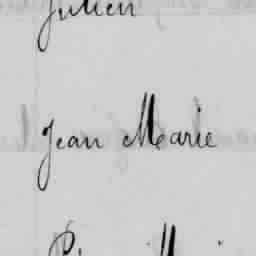 Julien
Jean Marie